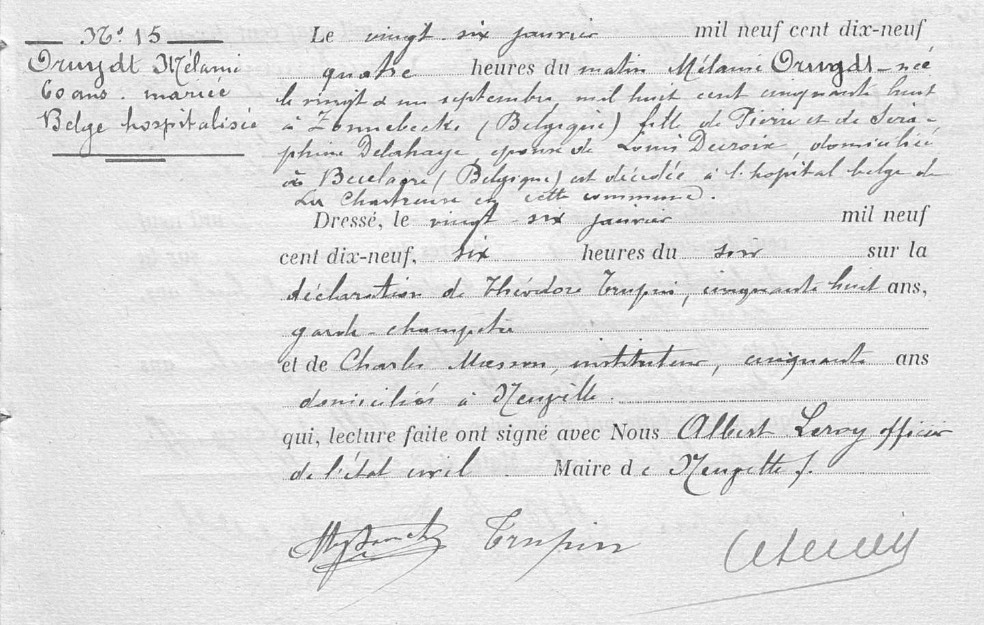 N° 15
Oruydt Mélanie
60 ans. mariée
Belge hospitalisée
Le vingt six janvier mil neuf cent dix-neuf
quatre heures du matin Mélanie Oruydt née
le vingt & un septembre mil huit cent cinquante huit
à Zonnebecke (Belgique) fille de Pierre et de Séra-
phine Delahaye, épouse de Louis Decroix, domiciliée
à Becelaere (Belgique) est décédée à l'hopital belge de
La Chartreuse en cette commune.
Dressé, le vingt six janvier mil neuf
cent dix-neuf, six heures du soir sur la
déclaration de Théodore Trupin, cinquante huit ans,
garde-champêtre
et de Charles Masson, instituteur, cinquante ans
domiciliés à Neuville.
qui, lecture faite ont signé avec Nous Albert Leroy officier
de l'état civil Maire de Neuville /.
Trupin